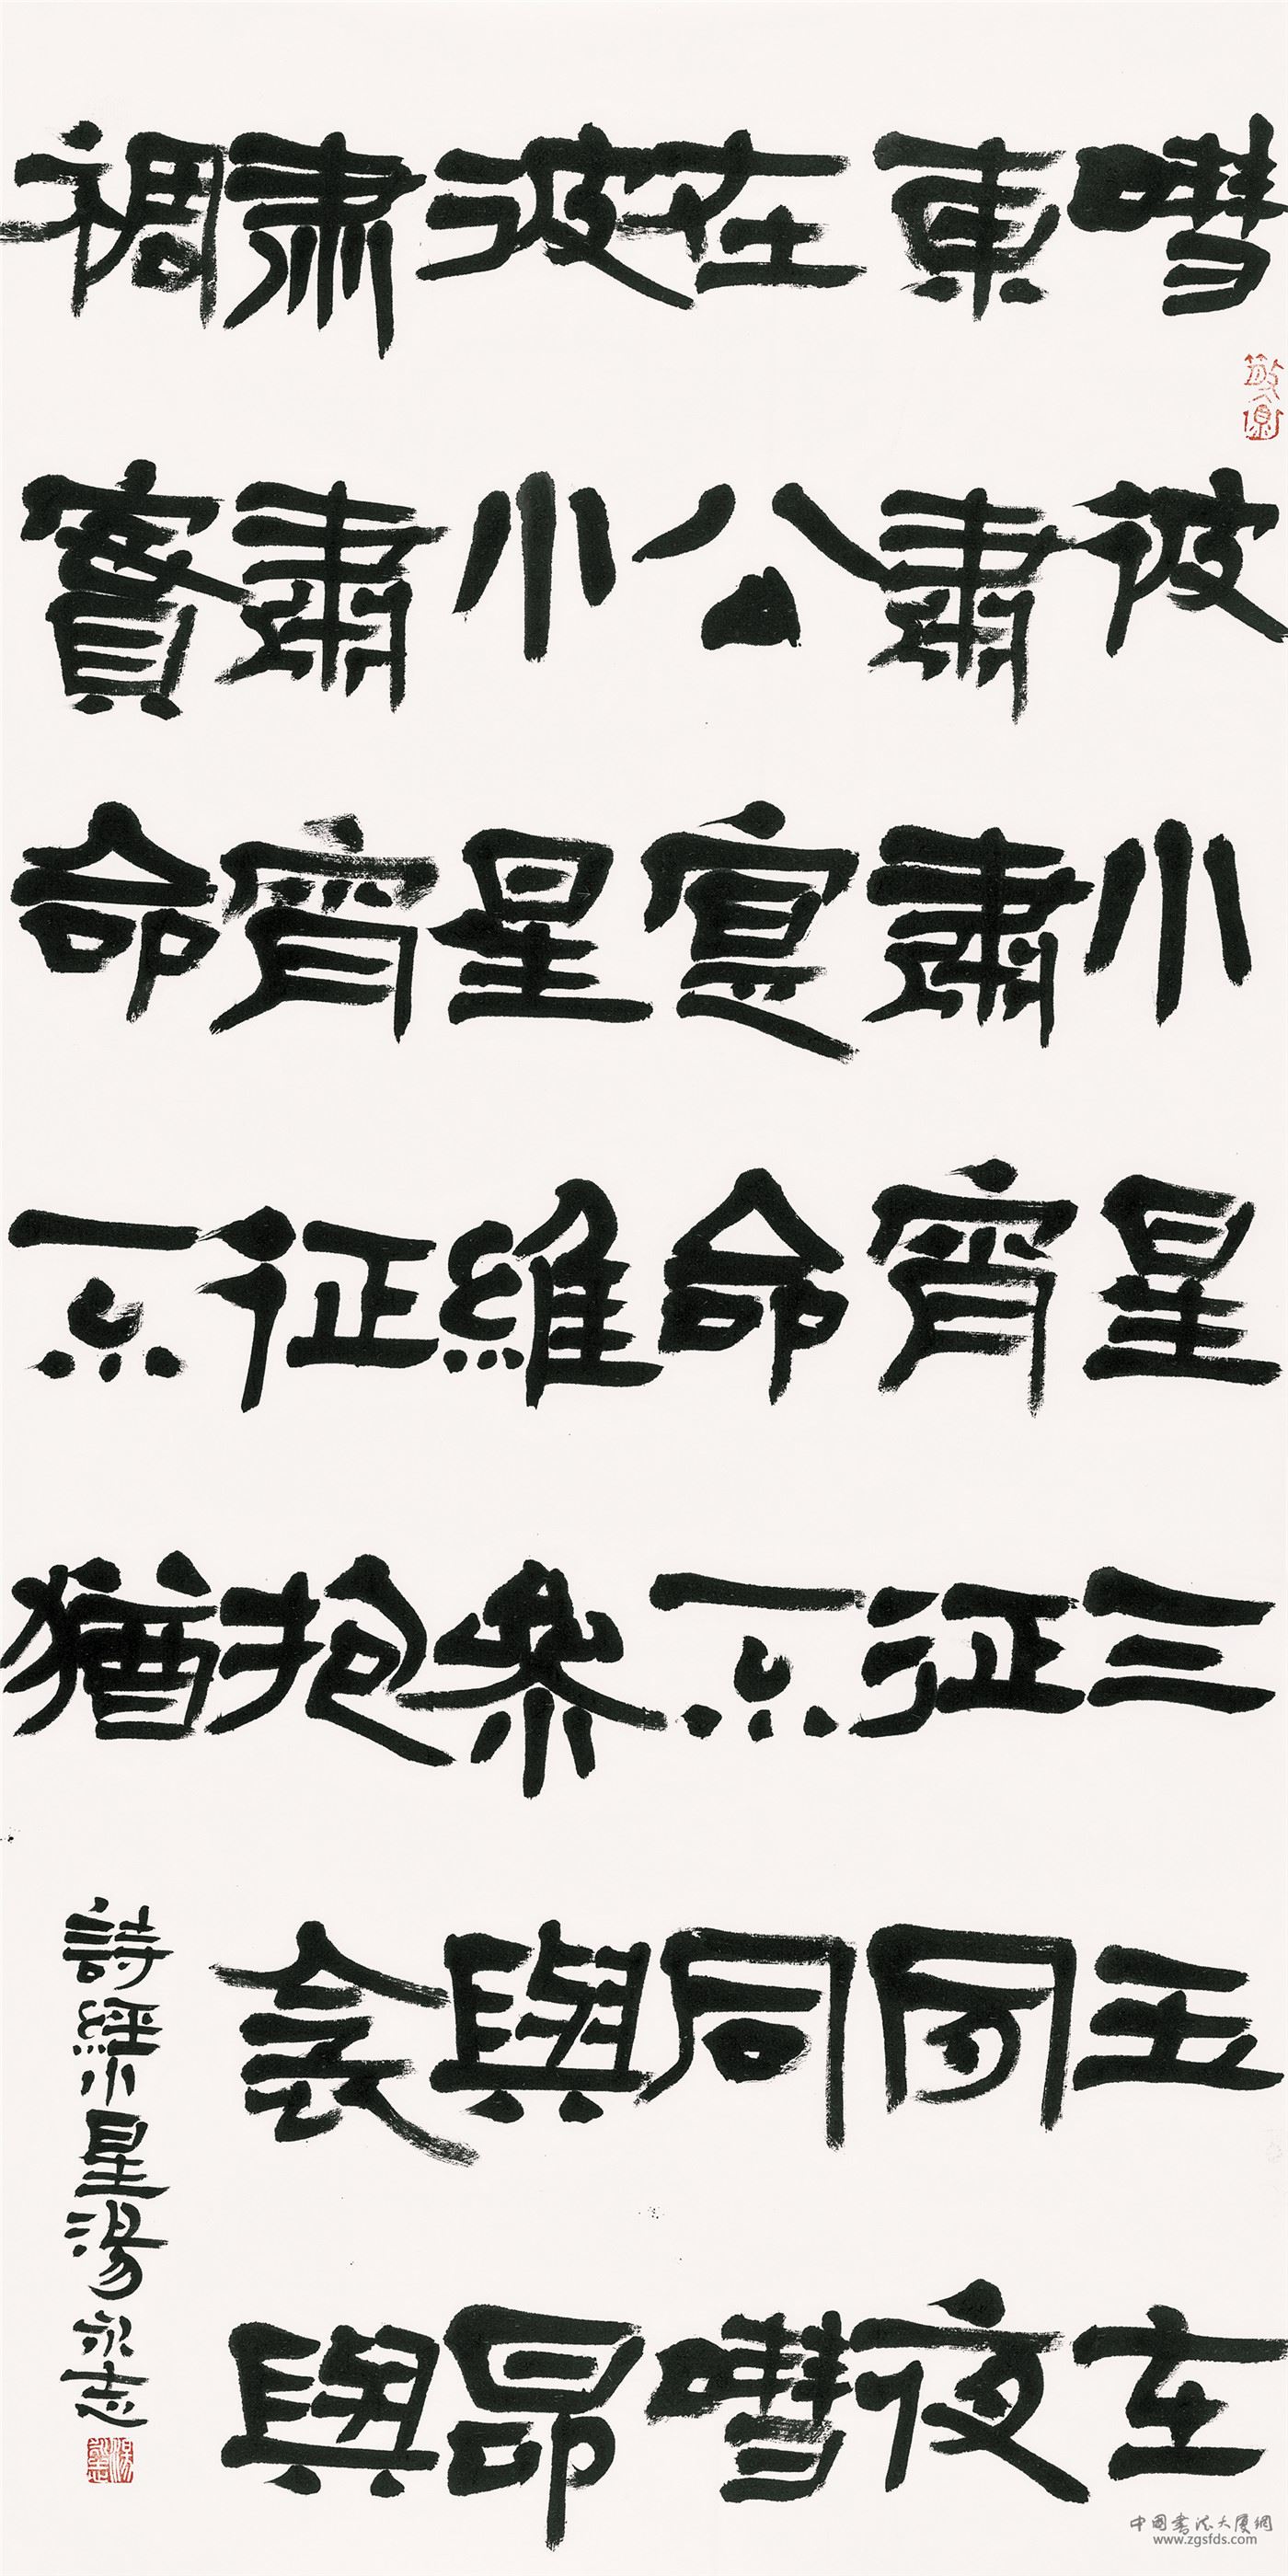 嘒彼小星三五在
東肅肅宵征夙夜
在公寔命不同嘒
彼小星維參與昴
肅肅宵征抱衾與
裯實命不猶
詩經小星湯永志
中国書法大厦網
www.zgsfds.com